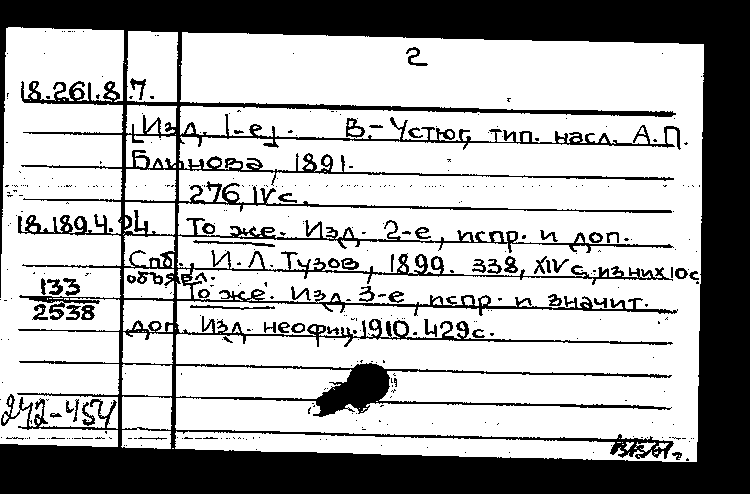 2
18.261.8.7.
[Изд. 1-е]. В.-Устюг, тип. насл. А.П.
Блинова, 1891.
276, IV с.
18.189.4.24. То же. Изд. 2-е, испр. и доп.
Спб., И.Л. Тузов, 1899. 338, XIV с., из них 10 с
объявл.
133 То же. Изд. 3-е, испр. и значит.
2538 доп. Изд. неофиц. 1910. 429 с.
242-454